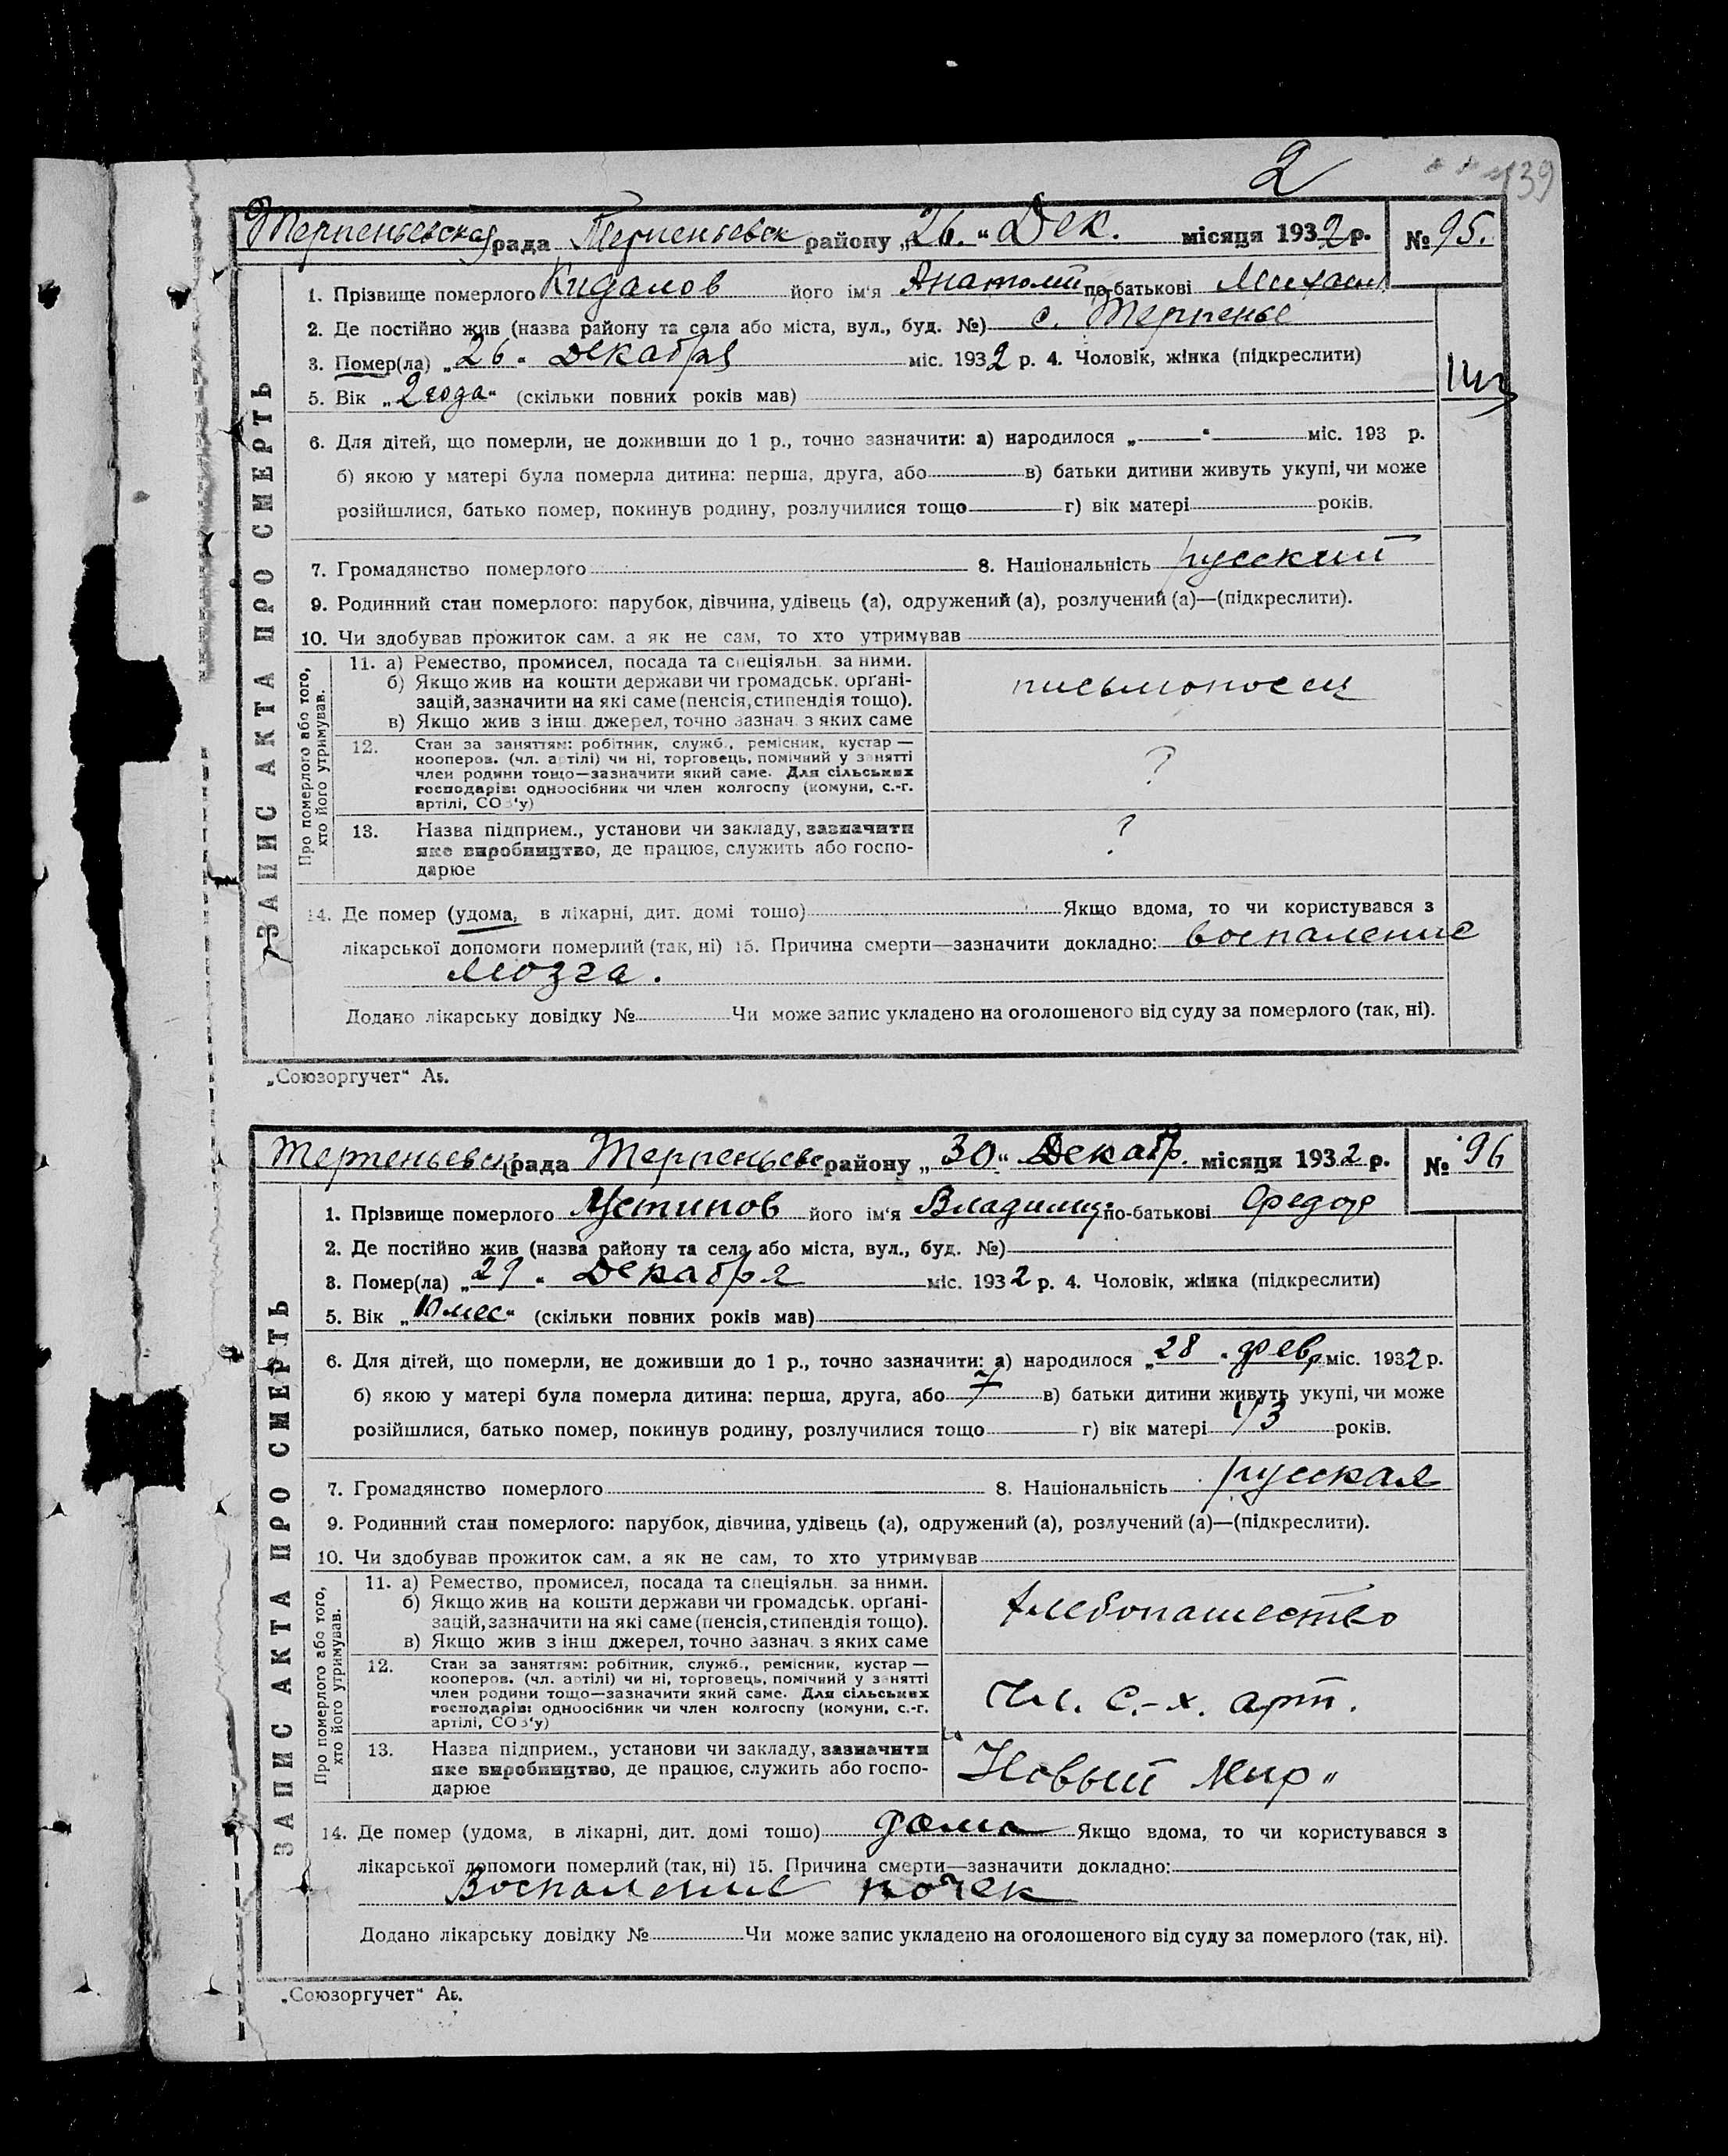 2
139
Терпеньевская рада Терпеньевск району „26.“ Дек. місяця 1932 р. № 95.
1. Прізвище померлого Кидалов його ім‘я Анатолий по-батькові Михаил
2. Де постійно жив (назва району та села або міста, вул., буд. №) с. Терпенье
3. Помер(ла) „26“ Декабря міс. 1932 р. 4. Чоловік, жінка (підкреслити)
5. Вік „2 года“ (скільки повних років мав)
6. Для дітей, що померли, не доживши до 1 р., точно зазначити: а) народилося „—“ міс. 193 р.
б) якою у матері була померла дитина: перша, друга, або в) батьки дитини живуть укупі, чи може
розійшлися, батько помер, покинув родину, розлучилися тощо г) вік матері років.
7. Громадянство померлого 8. Національність русский
9. Родинний стан померлого: парубок, дівчина, удівець (а), одружений (а), розлучений (а)—(підкреслити).
10. Чи здобував прожиток сам, а як не сам, то хто утримував
ЗАПИС АКТА ПРО СМЕРТЬ
Про померлого або того, хто його утримував.
11. а) Ремество, промисел, посада та спеціяльн. за ними.
б) Якщо жив на кошти держави чи громадськ. орґані-
зацій, зазначити на які саме (пенсія, стипендія тощо).
в) Якщо жив з інш. джерел, точно зазнач. з яких саме
письмоносец
12. Стан за заняттям: робітник, служб., ремісник, кустар —
кооперов. (чл. артілі) чи ні, торговець, помічний у занятті
член родини тощо—зазначити який саме. Для сільських
господарів: одноосібник чи член колгоспу (комуни, с.-г.
артілі, СОЗ‘у)
?
13. Назва підприєм., установи чи закладу, зазначити
яке виробництво, де працює, служить або госпо-
дарює
?
14. Де помер (удома, в лікарні, дит. домі тощо) Якщо вдома, то чи користувався з
лікарської допомоги померлий (так, ні) 15. Причина смерти—зазначити докладно: воспаление
мозга.
Додано лікарську довідку № Чи може запис укладено на оголошеного від суду за померлого (так, ні).
„Союзоргучет“ Аб.
Терпеньевск рада Терпеньевс району „30“ Декабр. місяця 1932 р. № 96
1. Прізвище померлого Устинов його ім‘я Владимир по-батькові Федор
2. Де постійно жив (назва району та села або міста, вул., буд. №)
3. Помер(ла) „29“ Декабря міс. 1932 р. 4. Чоловік, жінка (підкреслити)
5. Вік „10 мес“ (скільки повних років мав)
6. Для дітей, що померли, не доживши до 1 р., точно зазначити: а) народилося „28“ февр міс. 1932 р.
б) якою у матері була померла дитина: перша, друга, або 7 в) батьки дитини живуть укупі, чи може
розійшлися, батько помер, покинув родину, розлучилися тощо г) вік матері 43 років.
7. Громадянство померлого 8. Національність русская
9. Родинний стан померлого: парубок, дівчина, удівець (а), одружений (а), розлучений (а)—(підкреслити).
10. Чи здобував прожиток сам, а як не сам, то хто утримував
ЗАПИС АКТА ПРО СМЕРТЬ
Про померлого або того, хто його утримував.
11. а) Ремество, промисел, посада та спеціяльн. за ними.
б) Якщо жив на кошти держави чи громадськ. орґані-
зацій, зазначити на які саме (пенсія, стипендія тощо).
в) Якщо жив з інш. джерел, точно зазнач. з яких саме
хлебопашество
12. Стан за заняттям: робітник, служб., ремісник, кустар —
кооперов. (чл. артілі) чи ні, торговець, помічний у занятті
член родини тощо—зазначити який саме. Для сільських
господарів: одноосібник чи член колгоспу (комуни, с.-г.
артілі, СОЗ‘у)
Чл. с.-х. арт.
13. Назва підприєм., установи чи закладу, зазначити
яке виробництво, де працює, служить або госпо-
дарює
"Новый Мир"
14. Де помер (удома, в лікарні, дит. домі тощо) дома Якщо вдома, то чи користувався з
лікарської допомоги померлий (так, ні) 15. Причина смерти—зазначити докладно:
Воспаление почек
Додано лікарську довідку № Чи може запис укладено на оголошеного від суду за померлого (так, ні).
„Союзоргучет“ Аб.